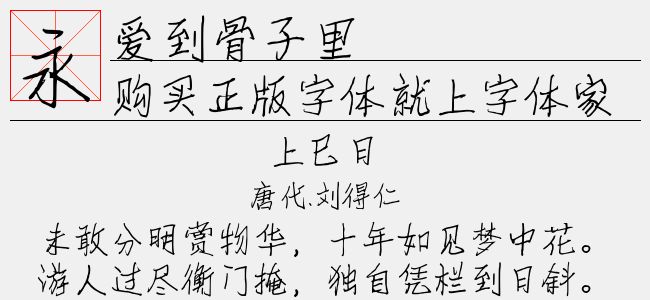 永
爱到骨子里
购买正版字体就上字体家
上巳日
唐代.刘得仁
未敢分明赏物华，十年如见梦中花。
游人过尽衡门掩，独自凭栏到日斜。